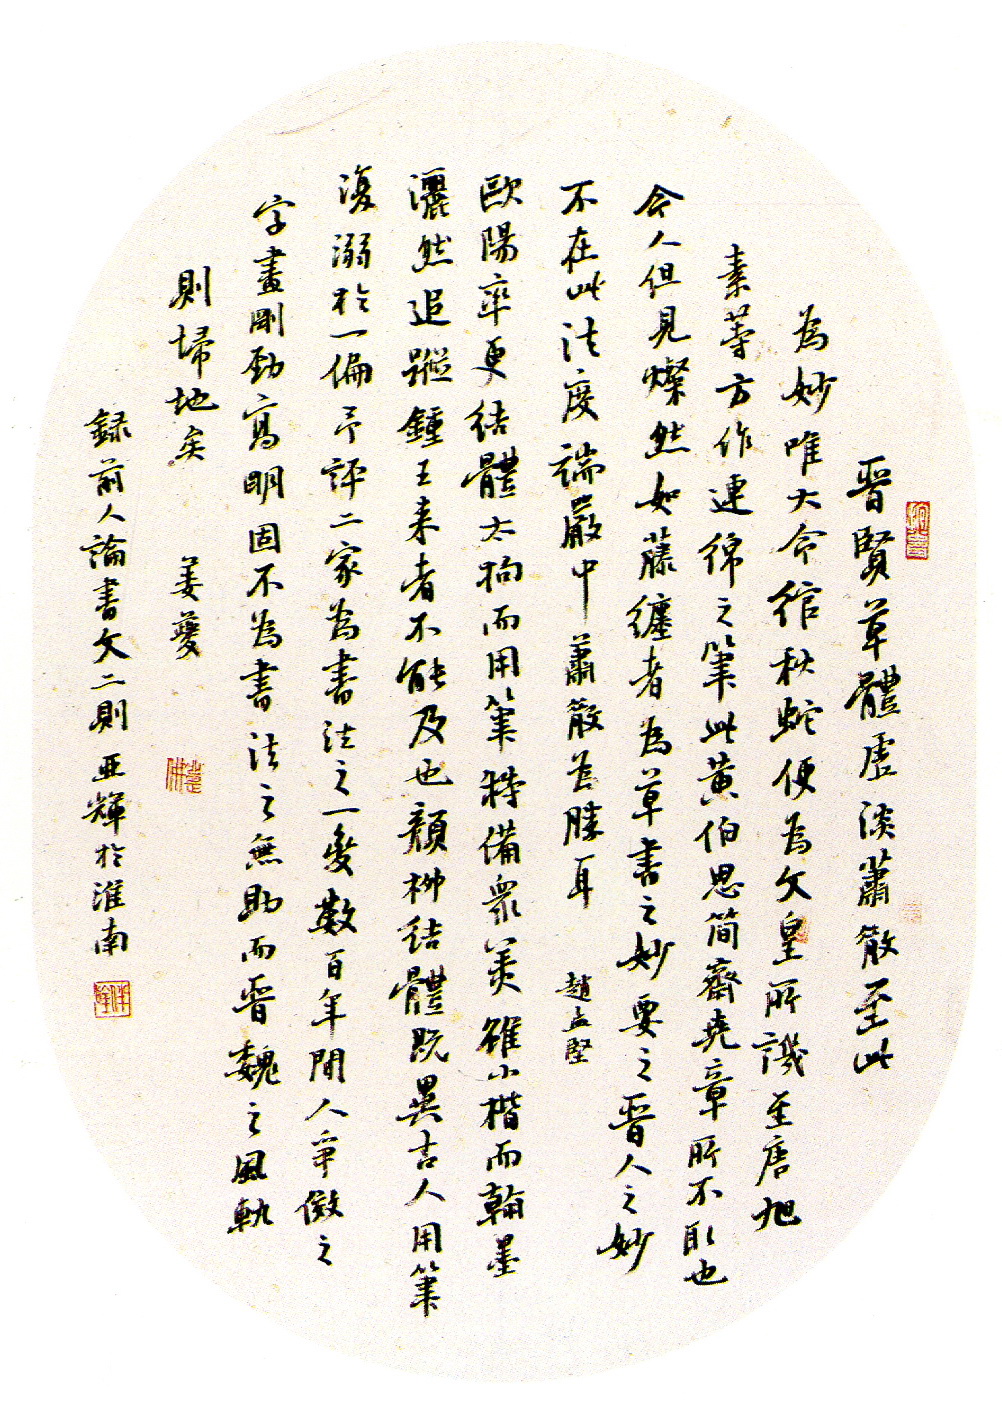 晉賢草體虛淡蕭散至此
為妙唯大令綰秋蛇便為文皇所譏至唐旭
素等方作連綿之筆此黃伯思簡齋堯章所不取也
今人但見爍然如藤纏者為草書之妙要之晉人之妙
不在此法度端嚴中蕭散為勝耳 趙孟堅
歐陽率更結體太拘而用筆特備衆美雖小楷而翰墨
灑然追蹤鍾王來者不能及也顏柳結體既異古人用筆
復溺於一偏予評二家為書法之一變數百年間人爭傚之
字畫剛勁高明固不為書法之無助而晉魏之風軌
則掃地矣 姜夔
録前人論書文二則亞輝於淮南